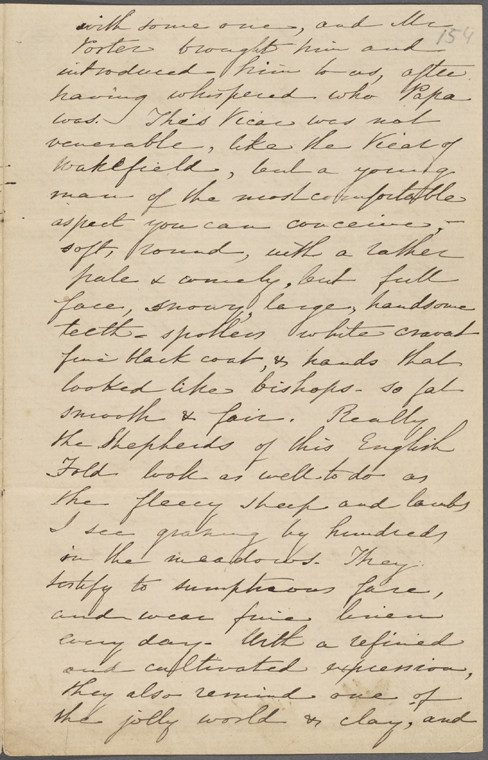 154
with some one, and Mr
Foster brought him and
introduced him to us, after
having whispered who Papa
was. This Vicar was not
venerable, like the Vicar of
Wakefield, but a young
man of the most comfortable
aspect you can conceive, -
soft, round, with a rather
pale & comely, but full
face, snowy, large, handsome
teeth - spotless white cravat
fine black coat, & hands that
looked like bishops - so fat
smooth & fair. Really
the Shepherds of this English
Fold look as well to do as
the fleecy sheep and lambs
I see grazing by hundreds
in the meadows. They
testify to sumptuous fare,
and wear fine linen
every day. With a refined
and cultivated expression,
they also remind one of
the jolly world & clay, and